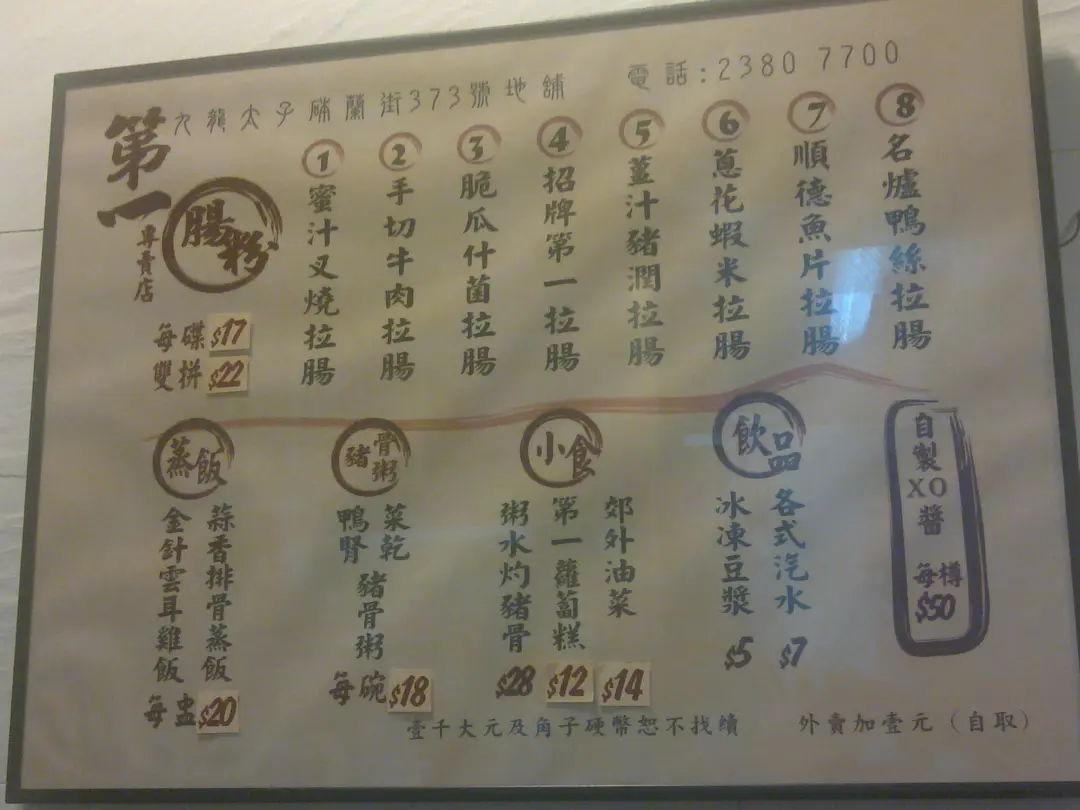 九龍太子砵蘭街373號地舖
電話:2380 7700
第一
腸粉
專賣店
每碟 $17
雙拼 $22
1 蜜汁叉燒拉腸
2 手切牛肉拉腸
3 脆瓜什菌拉腸
4 招牌第一拉腸
5 薑汁豬潤拉腸
6 蔥花蝦米拉腸
7 順德魚片拉腸
8 名爐鴨絲拉腸
蒸飯
蒜香排骨蒸飯
金針雲耳雞飯
每盅 $20
豬骨粥
菜乾
鴨腎
豬骨粥
每碗 $18
小食
粥水灼豬骨 $28
第一蘿蔔糕 $12
郊外油菜 $14
飲品
冰凍豆漿 $5
各式汽水 $7
自製XO醬
每樽
$50
壹千大元及角子硬幣恕不找續
外賣加壹元(自取)